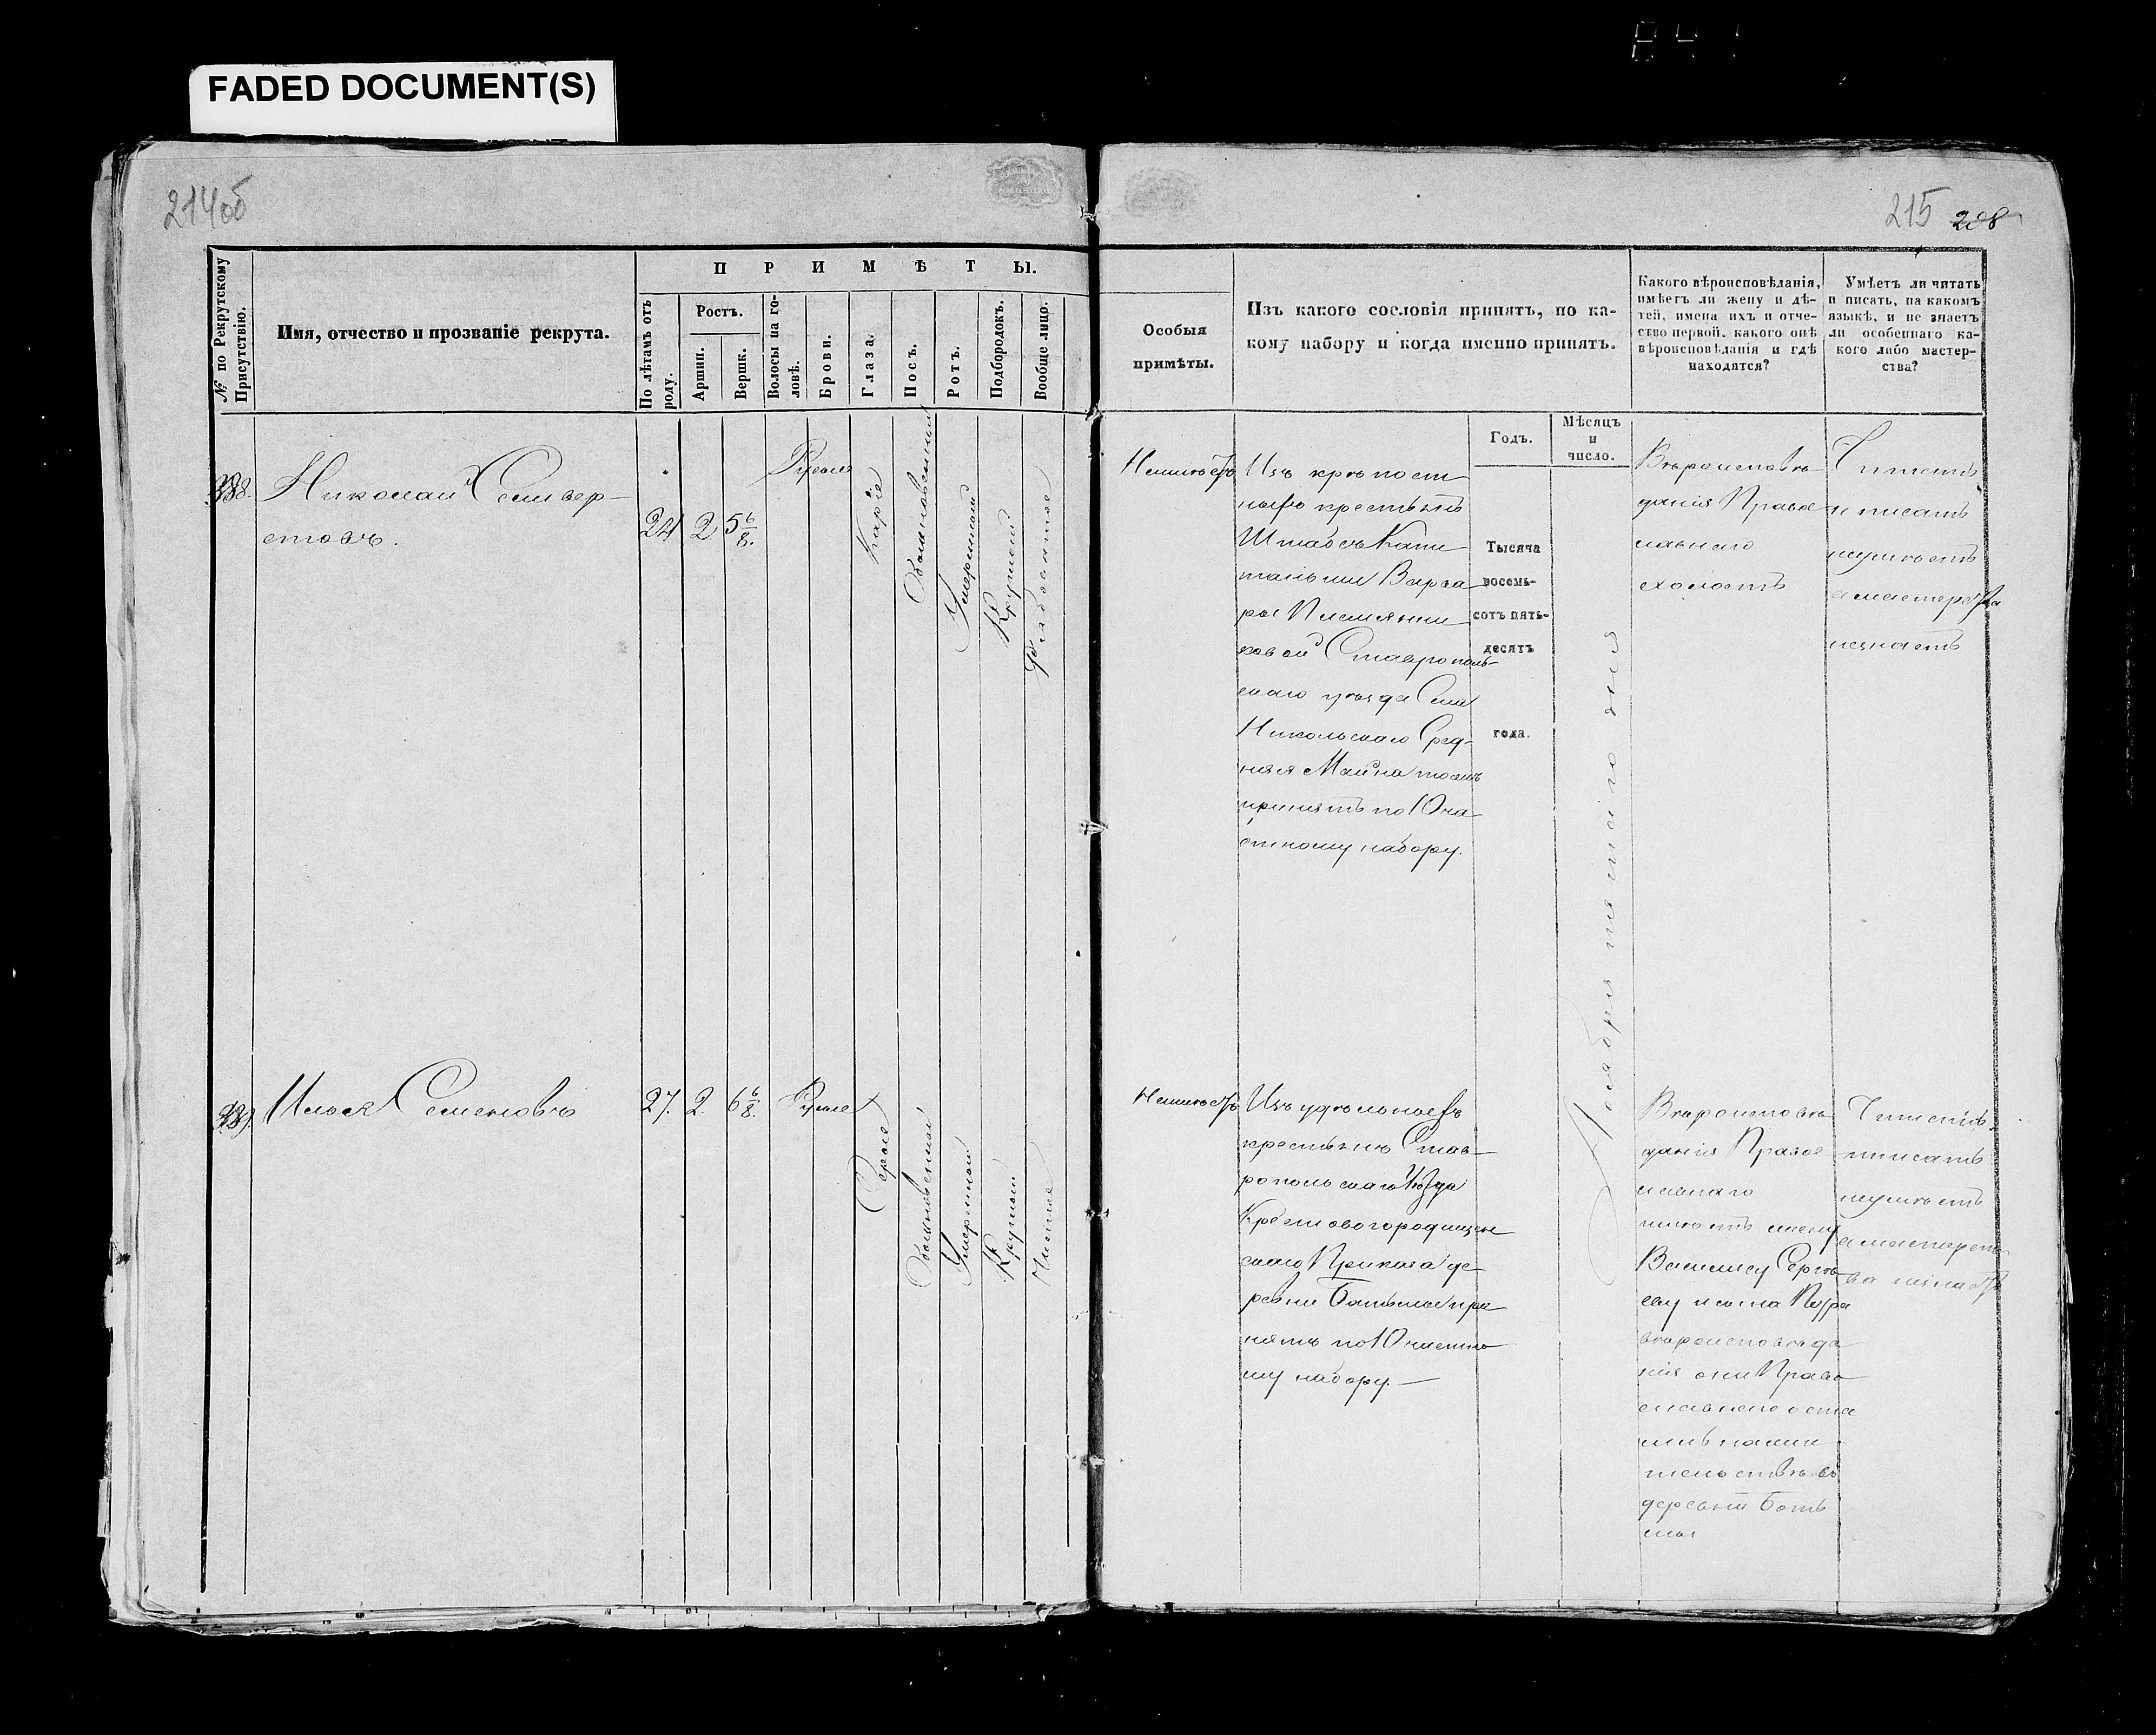 FADED DOCUMENT(S)
214об
215 208
№ по Рекрутскому Присутствію.
Имя, отчество и прозваніе рекрута.
ПРИМѢТЫ.
По лѣтамъ отъ роду.
Ростъ.
Аршин.
Вершк.
Волосы на головѣ.
Брови.
Глаза.
Носъ.
Ротъ.
Подбородокъ.
Вообще лицо.
Особыя
примѣты.
Изъ какого сословія принятъ, по ка-
кому набору и когда именно принятъ.
Годъ.
Мѣсяцъ
и
число.
Какого вѣроисповѣданія,
имѣетъ ли жену и дѣ-
тей, имена ихъ и отче-
ство первой, какого онѣ
вѣроисповѣданія и гдѣ
находятся?
Умѣетъ ли читать
и писать, на какомъ
языкѣ, и не знаетъ
ли особеннаго ка-
кого либо мастер-
ства?
338.
Николай Селивер-
стовъ.
24
2
5 6/8.
Русые
Каріе
Обыкновенный
Умеренный
Круглой
Рябоватое
Неимѣетъ
Изъ крѣпост
ныхъ крестьянъ
Штабсъ Капи
танши Варва
ры Племянни
ковой Ставрополь-
скаго уѣзда Села
Никольскаго Сред-
няя Майна тожъ
принятъ по 10 ча
стному набору.
Тысяча
восемь-
сотъ пять-
десятъ
года.
Ноября пятаго дня
Вѣроисповѣ-
данія Право
славнаго
холостъ
Читать
и писать
неумѣетъ
а мастерства
незнаетъ
339.
Илья Семеновъ
27.
2.
6 6/8.
Русые
Серые
Обыкновенный
Умеренной
Круглый
Чистое
Неимѣетъ
Изъ удѣльныхъ
крестьянъ Став-
ропольскаго Уѣзда
Крестовогородищен
скаго Приказа де-
ревни Ботьмы при
нятъ по 10 частно
му набору.—
Вѣроисповѣ-
данія Право
славнаго
имѣетъ жену
Василису Сергѣ-
еву и сына Петра
вѣроисповѣда
нія они Право
славнаго оста
лись на жи
тельствѣ въ
деревни Боть
мы
Читать
и писать
неумѣетъ
а мастерст
ва незнаетъ